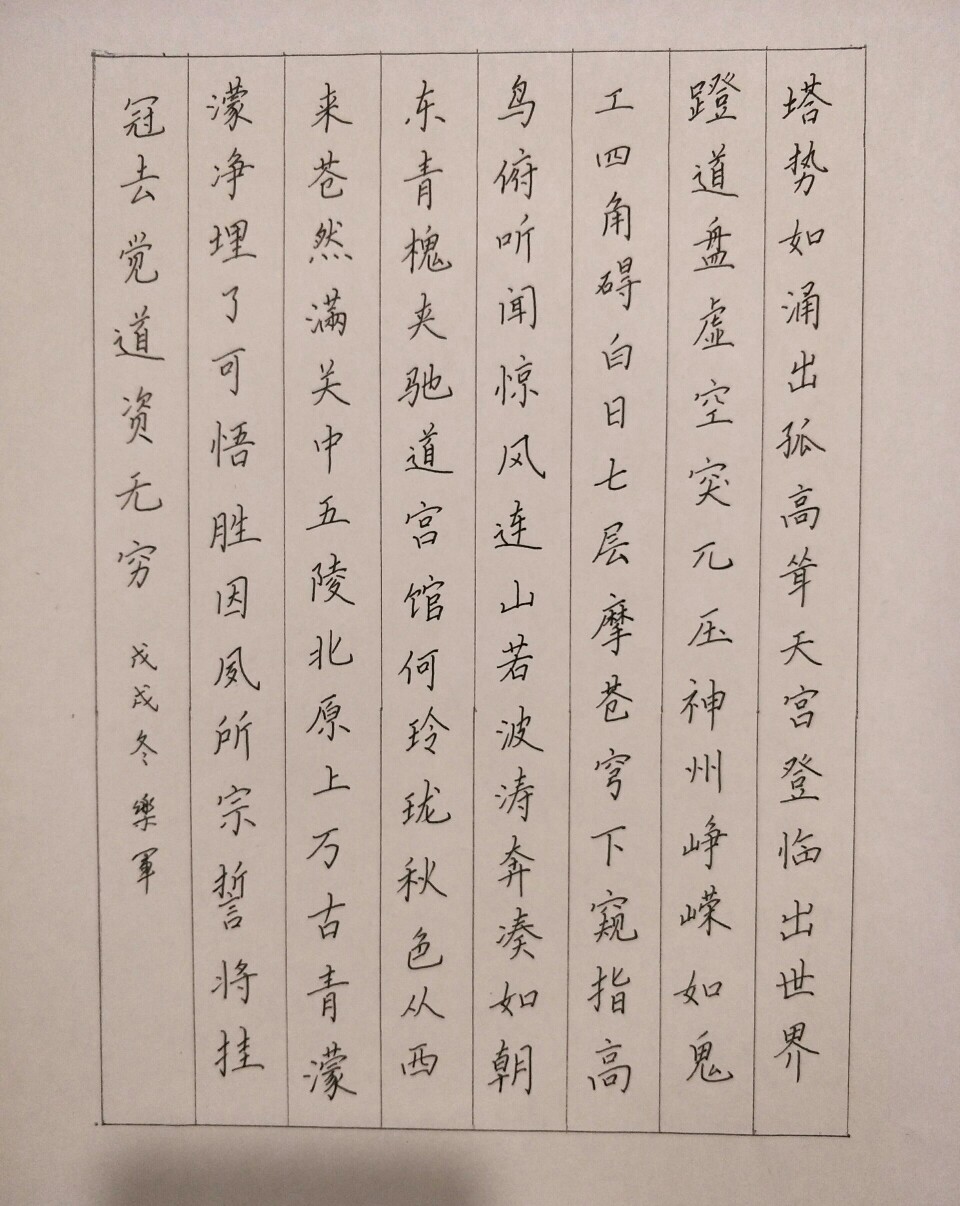 塔势如涌出孤高耸天宫登临出世界
蹬道盘虚空突兀压神州峥嵘如鬼
工四角碍白日七层摩苍穹下窥指高
鸟俯听闻惊风连山若波涛奔凑如朝
东青槐夹驰道宫馆何玲珑秋色从西
来苍然满关中五陵北原上万古青濛
濛净埋了可悟胜因夙所宗誓将挂
冠去觉道资无穷 戊戌冬 樂軍